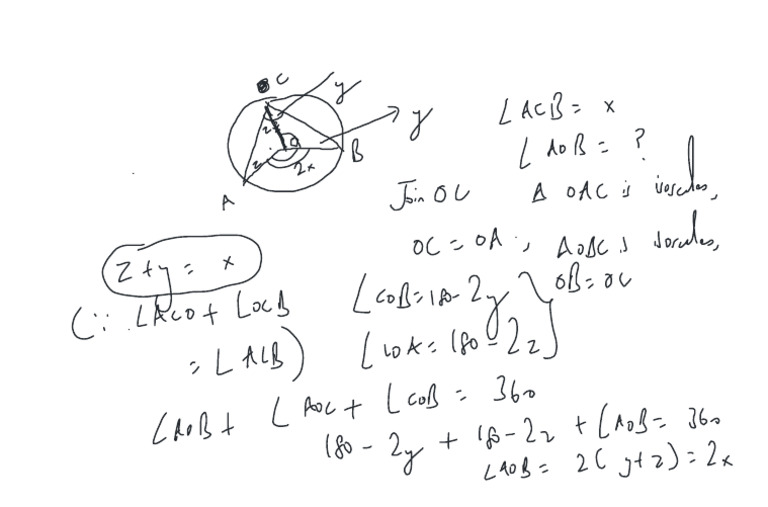 C
y
y
z
O
z
2x
B
A
∠ACB = x
∠AOB = ?
Join OC Δ OAC is isosceles,
OC = OA, ΔOBC is isosceles,
OB = OC
z + y = x
(∵ ∠ACO + ∠OCB
= ∠ACB)
∠COB = 180 - 2y
∠COA = 180 - 2z
∠AOB + ∠AOC + ∠COB = 360
180 - 2y + 180 - 2z + ∠AOB = 360
∠AOB = 2(y+z) = 2x